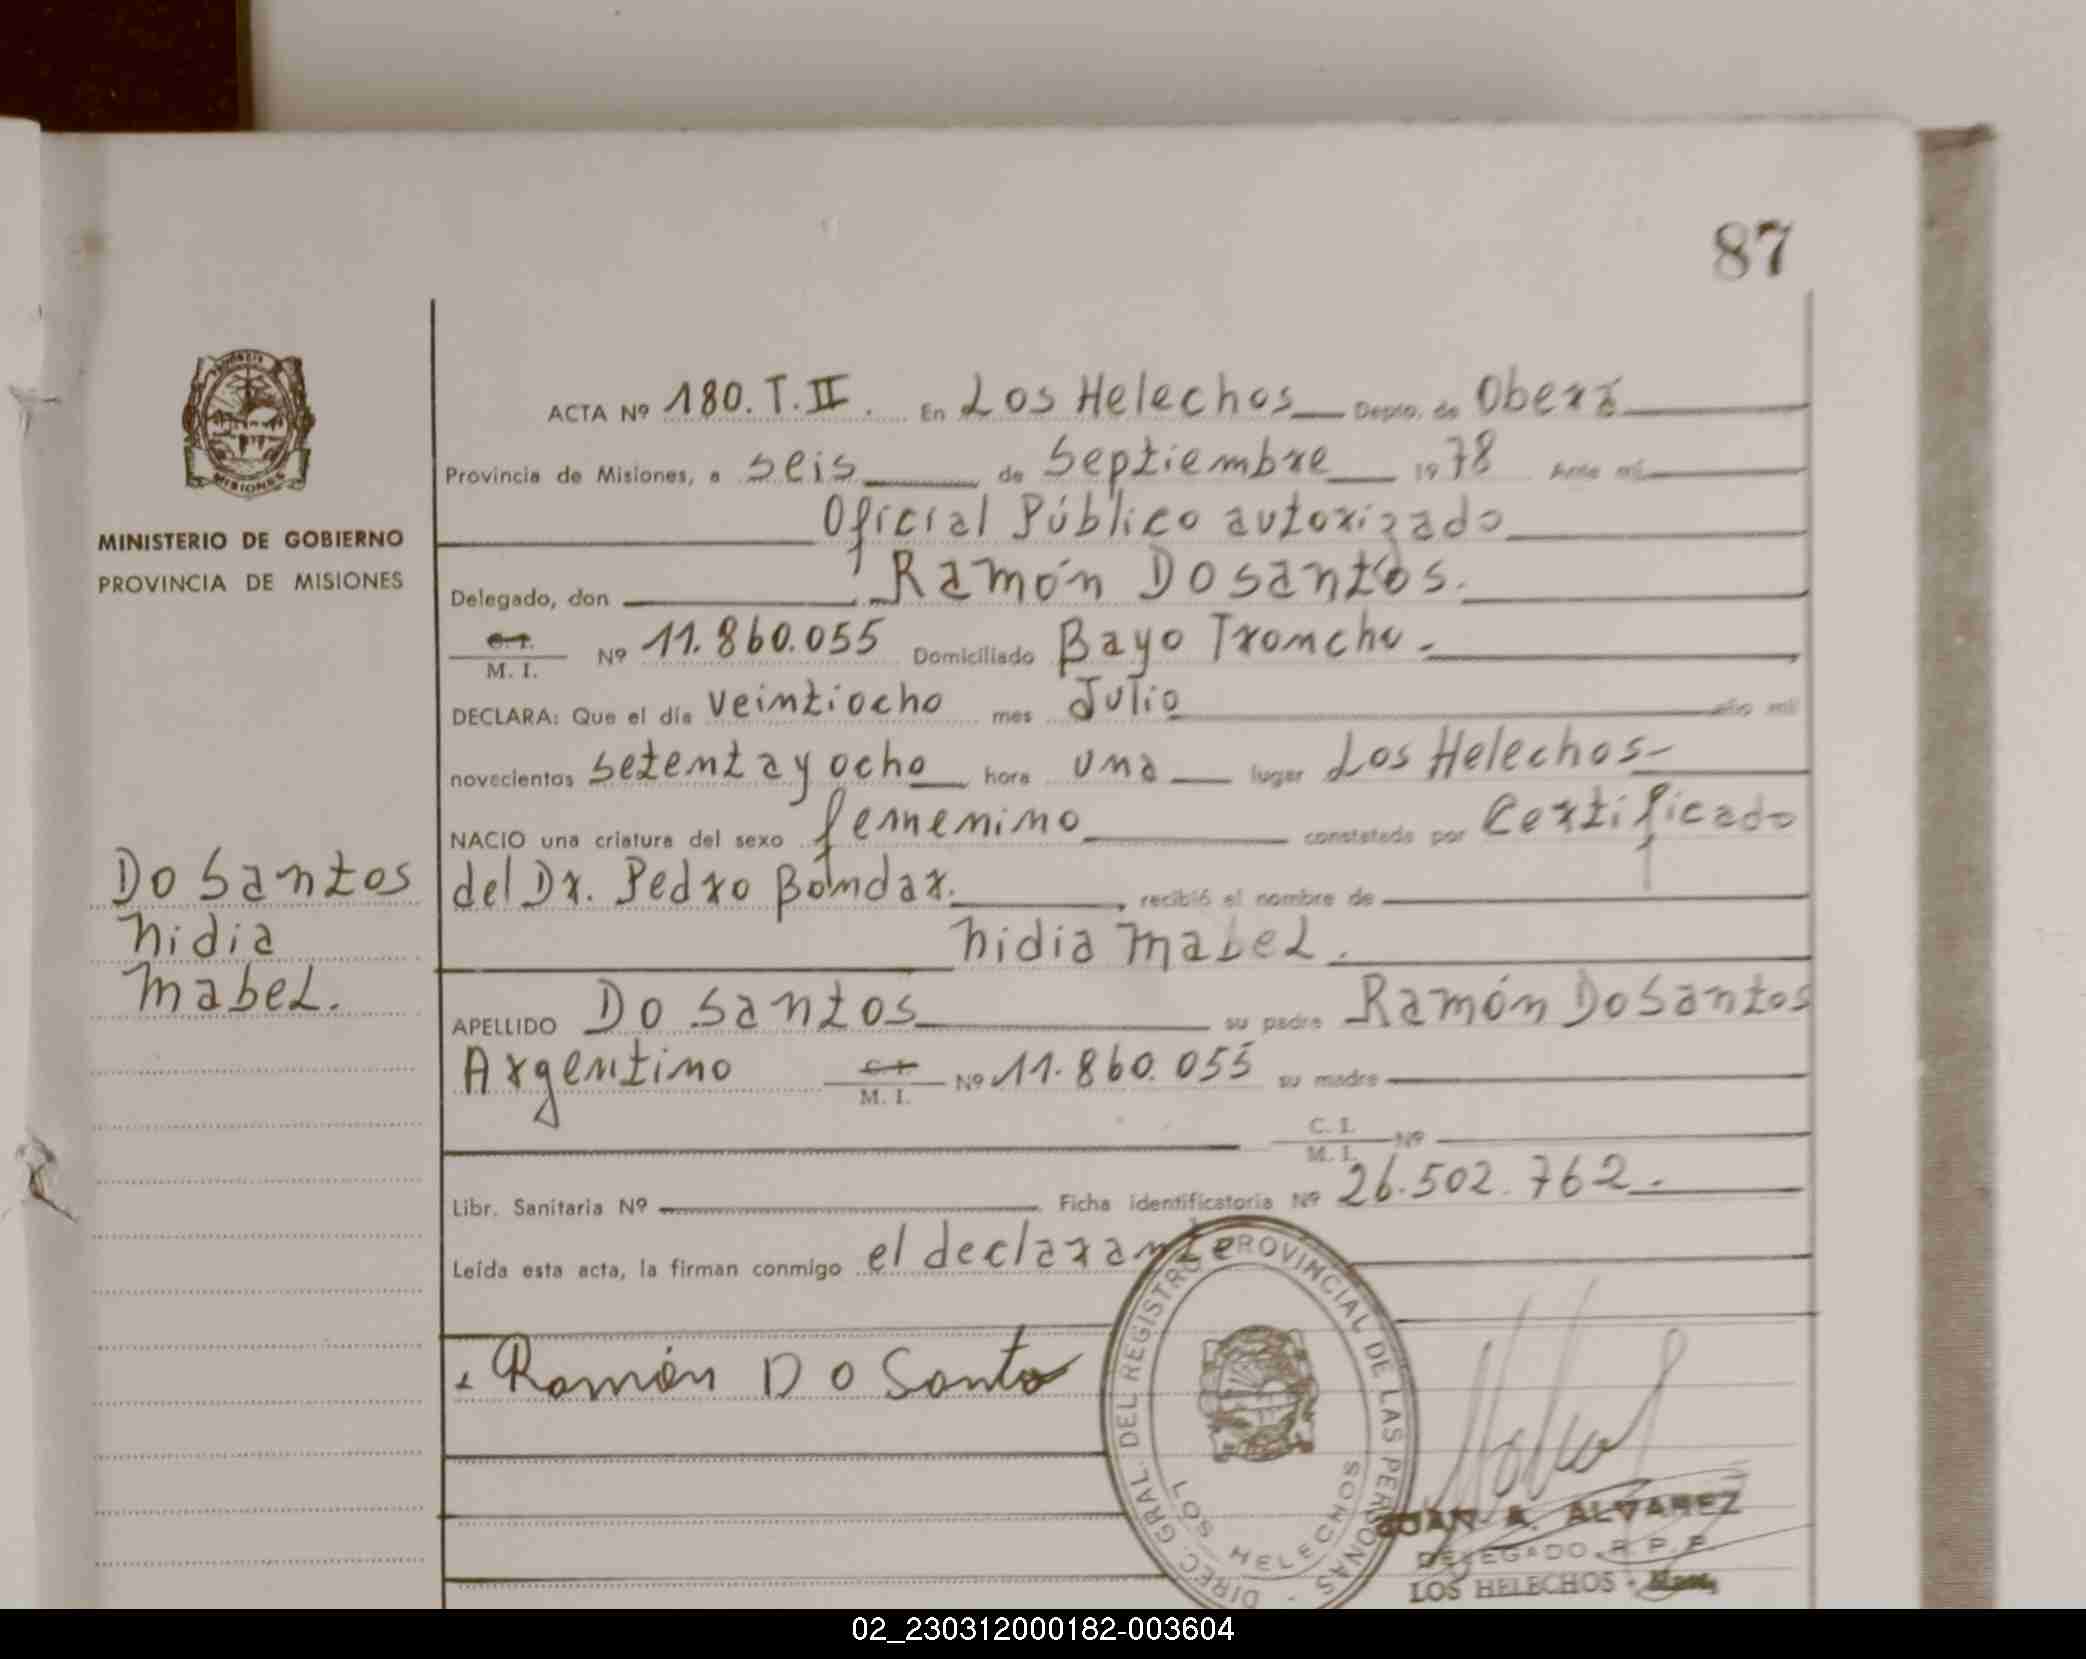 87
MISIONES
MINISTERIO DE GOBIERNO
PROVINCIA DE MISIONES
Do Santos
Nidia
Mabel.
ACTA Nº 180. T. II. En Los Helechos Depto. de Oberá
Provincia de Misiones, a seis de Septiembre 1978 Ante mí
Oficial Público autorizado
Delegado, don Ramón Do santos.
C. I.
M. I. Nº 11.860.055 Domiciliado Bayo Troncho.
DECLARA: Que el día veintiocho mes Julio año mil
novecientos setenta y ocho hora una lugar Los Helechos
NACIO una criatura del sexo femenino constatado por Certificado
del Dr. Pedro Bondar. , recibió el nombre de
Nidia Mabel.
APELLIDO Do Santos su padre Ramón Do Santos
Argentino C. I.
M. I. Nº 11.860.055 su madre
C. I.
M. I. Nº
Libr. Sanitaria Nº Ficha identificatoria Nº 26.502.762.
Leída esta acta, la firman conmigo el declarante
Ramón Do Santo
DIREC. GRAL. DEL REGISTRO PROVINCIAL DE LAS PERSONAS
LOS HELECHOS
JUAN A. ALVAREZ
DELEGADO R. P. P.
LOS HELECHOS -
02_230312000182-003604